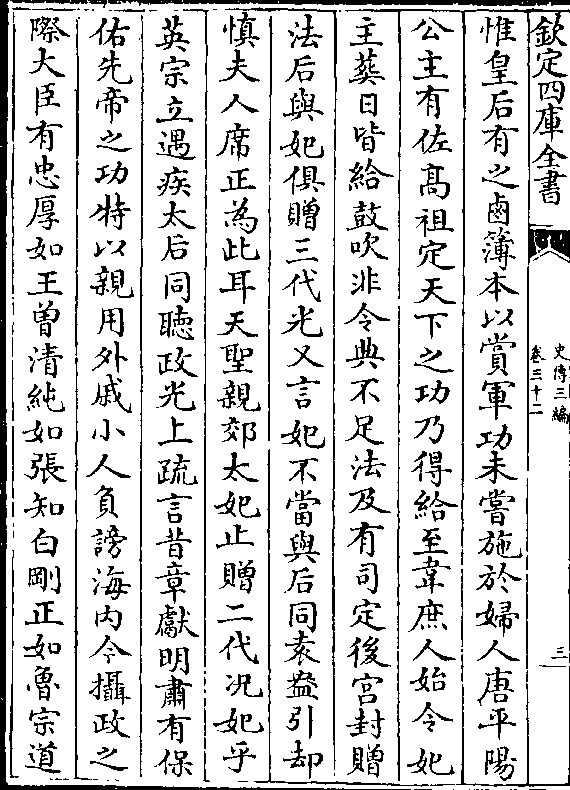 欽定四庫全書
史傳三編
卷三十二
三
惟皇后有之鹵簿本以賞軍功未嘗施於婦人唐平陽
公主有佐髙祖定天下之功乃得給至韋庶人始令妃
主葬日皆給鼓吹非令典不足法及有司定後宮封贈
法后與妃俱贈三代光又言妃不當與后同袁盎引却
慎夫人席正為此耳天聖親郊太妃止贈二代况妃乎
英宗立遇疾太后同聽政光上疏言昔章獻明肅有保
佑先帝之功特以親用外戚小人負謗海内今攝政之
際大臣有忠厚如王曽清純如張知白剛正如魯宗道